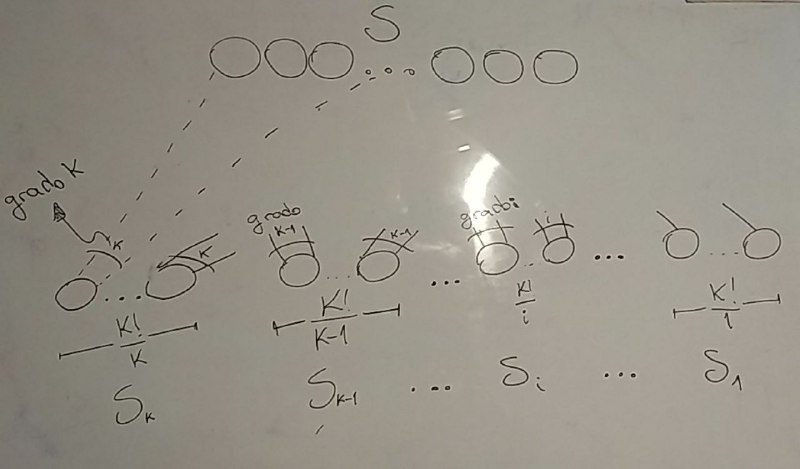 S
grado K
K
K
grado
K-1
K-1
grado i
i
...
...
...
...
...
...
...
K!/K
K!/K-1
K!/i
K!/1
Sk
Sk-1
...
Si
...
S1